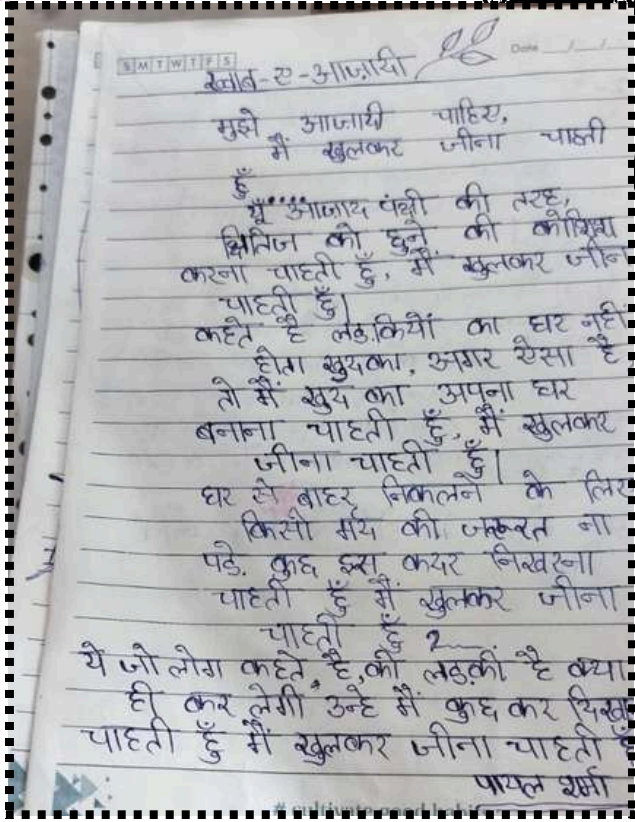 S M T W T F S
Date / /
ख्वाब-ए-आज़ादी
मुझे आजादी चाहिए,
मैं खुलकर जीना चाहती
हूँ
यूँ आजाद पंछी की तरह,
क्षितिज को छुने की कोशिश
करना चाहती हूँ, मैं खुलकर जीन
चाहती हूँ|
कहते है लड़कियों का घर नहीं
होता खुदका, अगर ऐसा है
तो मैं खुद का अपना घर
बनाना चाहती हूँ, मैं खुलकर
जीना चाहती हूँ|
घर से बाहर निकलने के लिए
किसी मर्द की जरूरत ना
पडे. कुछ इस कदर निखरना
चाहती हूँ मैं खुलकर जीना
चाहती हूँ 2
ये जो लोग कहते है, की लड़की है क्या
ही कर लेगी उन्हे मैं कुछ कर दिखा
चाहती हूँ मैं खुलकर जीना चाहती हूँ
पायल शर्मा
# cultivate good habits